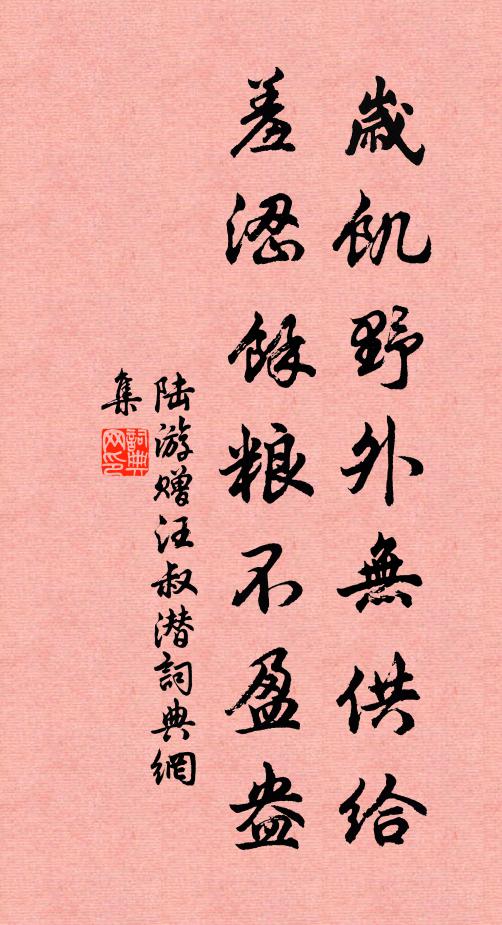 歲飢野外無供給
羞澀餘粮不盈盎
陆游赠汪叔潜詞典網
集
詞典
网印